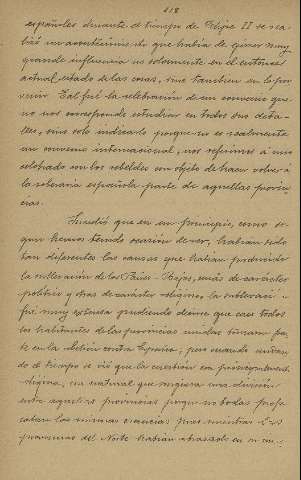 218
españoles durante el tiempo de Felipe II se rea-
lizó un acontecimiento que había de ejercer muy
grande influencia no solamente en el entonces
actual estado de las cosas, sino tambien en lo por-
venir. Tal fué la celebración de un convenio que
no nos corresponde estudiar en todos sus deta-
lles, sino solo indicarlo porque no es realmente
un convenio internacional, nos referimos á uno
celebrado con los rebeldes con objeto de hacer volver á
la soberanía española parte de aquellas provin-
cias.
Sucedió que en un principio, como se-
gún hemos tenido ocasión de ver, habían sido
tan diferentes las causas que habían producido
la sublevación de los Países-Bajos, unas de carácter
político y otras de carácter religioso, la sublevación
fué muy extensa pudiendo decirse que casi todos
los habitantes de las provincias unidas tomaron par-
te en la acción contra España; pero cuando andan-
do el tiempo se vió que la cuestión era principalmente
religiosa, era natural que surgiera una división
entre aquellas provincias porque no todas profe-
saban las mismas creencias pues mientras las
provincias del Norte habían abrazado en su